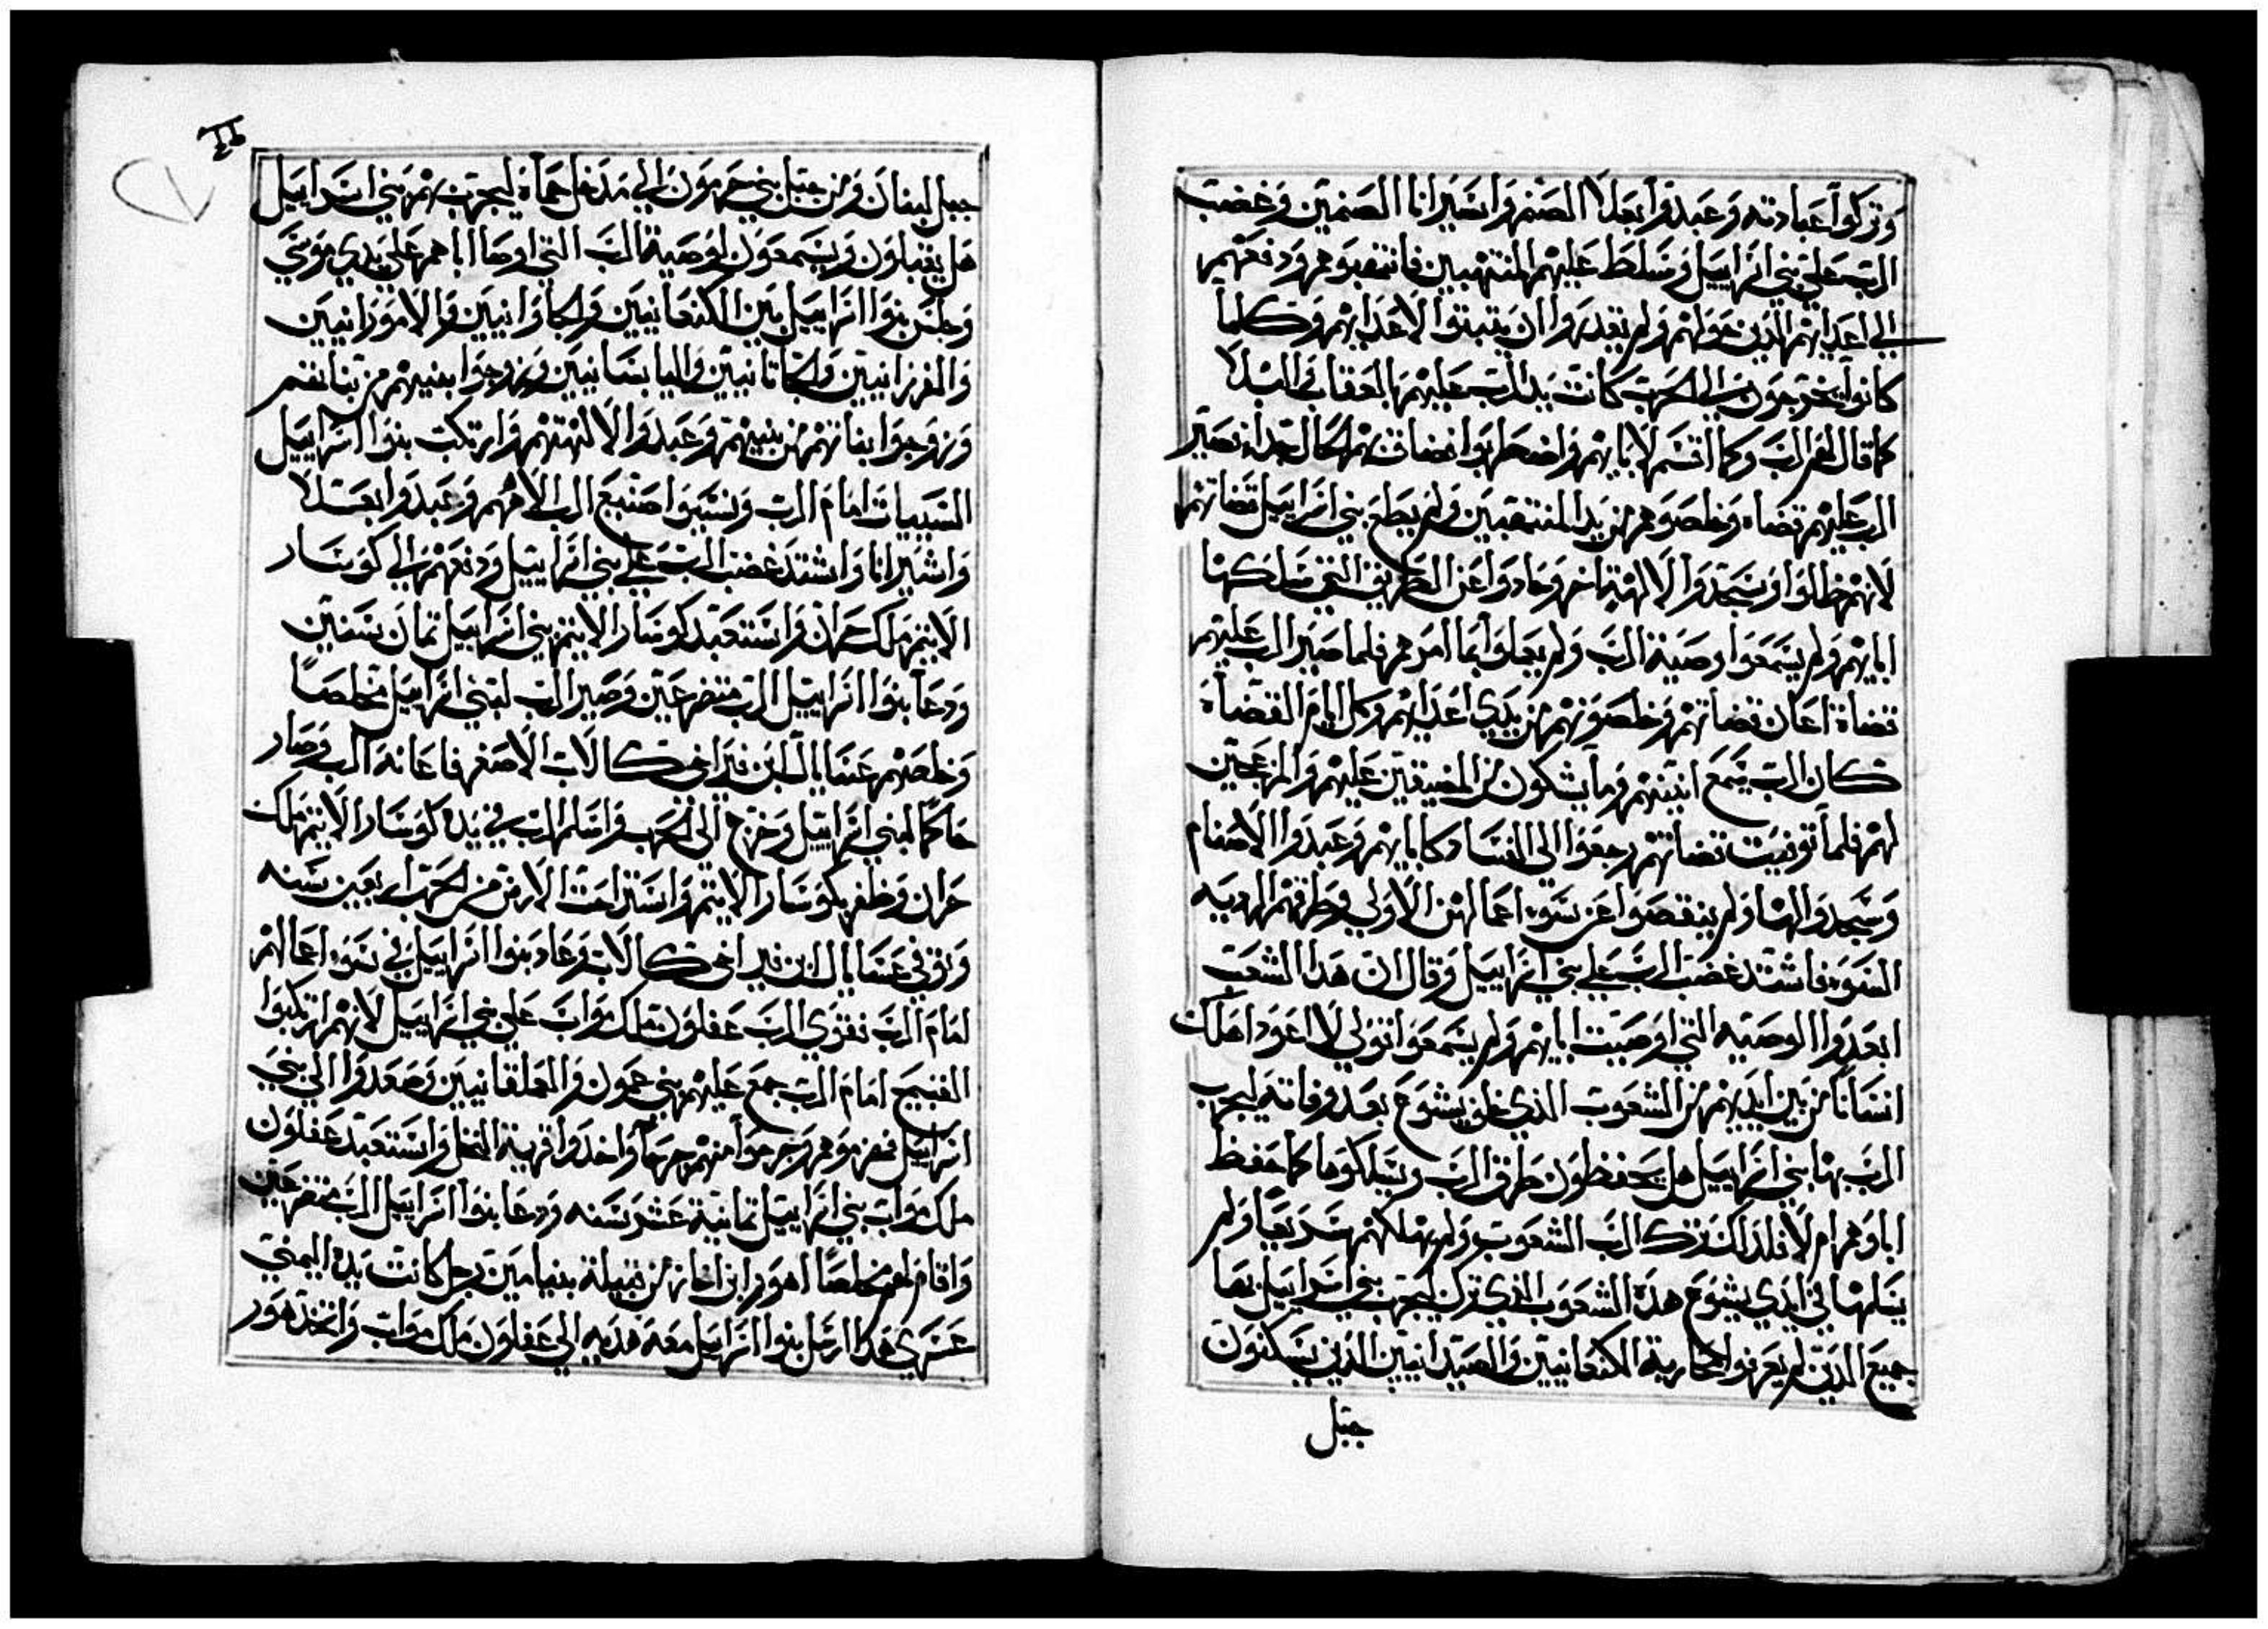 وتركوا عبادته وعبدوا بعلا الصنم واستيرانا الصنمين وغضب
الرب علي بني اسراييل وسلط عليهم المنتهبين فانتهبوهم ودفعهم
الي اعدايهم الذين حولهم ولم يقدروا ان يثبتوا لاعدايهم وكلما
كانوا يخرجون الي الحرب كانت يد الرب عليهم بالعقاب في البلا
كما قال لهم الرب وكما اقسم لابايهم واضطربوا فضاقت بهم الحال جدا فصير
الرب عليهم قضاه وخلصوهم من يد المنتهبين ولم يطع بني اسراييل قضاتهم
لانهم ضلوا وسجدوا لالهة اخر وحادوا عن الطريق التي سلكها
اباهم ولم يسمعوا وصية الرب ولم يعملوا بما امرهم فلما صير الرب عليهم
قضاة اعان قضاتهم وخلصوهم من يدي اعدايهم وكل ايام القضاة
كان الرب يسمع انينهم وما يشكون من المضيقين عليهم والمزعجين
لهم فلما توفيت قضاتهم رجعوا الي الفساد كابايهم وعبدوا الاصنام
وسجدوا لها ولم ينقصوا عن سوء اعمالهم الاولي وطرقهم الرديه
السوء فاشتد غضب الرب علي بني اسراييل وقال ان هذا الشعب
ابعدوا الوصيه التي اوصيت ابايهم ولم يسمعوا قولي لا اعود اهلك
انسانا من بين ايديهم من الشعوب الذي خلف يشوع بعد وفاته ليجرب
الرب بها بني اسراييل هل يحفظون طرق الرب ويسلكوها كما حفظ
اباوهم ام لا فلذلك ترك الرب الشعوب ولم يهلكهم سريعا ولم
يسلمها في ايدي يشوع هذه الشعوب الذي ترك ليجرب بني اسراييل بها
جميع الذين لم يعرفوا محاربة الكنعانيين والصيدانيين الذين يسكنون
جبل
جبل لبنان ومن جبل بني حرمون الي مدخل حماة ليجرب بهم بني اسراييل
هل يقبلون ويسمعون لوصية الرب التي اوصا اباهم علي يدي موسي
وجلس بنوا اسراييل بين الكنعانيين والحاوانيين والامورانيين
والفرزانيين والحاتانيين واليابسانيين وزوجوا بنيهم من بناتهم
وزوجوا بناتهم من بنيهم وعبدوا الالهتهم وارتكب بنوا اسراييل
السييات امام الرب ونسيوا صنيع الرب الاههم وعبدوا بعلا
واشتيرانا واشتد غضب الرب علي بني اسراييل ودفعهم الي كوسار
الاثيم ملك حران واستعبد كوسار الاثيم بني اسراييل ثمان سنين
ودعا بنوا اسراييل الرب متضرعين وصير الرب لبني اسراييل مخلصا
وخلصهم عثنايال ابن قيز اخي كالاب الاصغر فاعانه الرب وصار
حاكما لبني اسراييل وخرج الي الحرب واسلم الرب في يده كوسار الاثيم ملك
حران وظفر بكوسار الاثيم واستراحت الارض من الحرب اربعين سنه
وتوفي عثنايال ابن قيز اخي كالاب وعاد بنوا اسراييل في سوء اعمالهم
امام الرب فقوي الرب عفلون ملك مواب علي بني اسراييل لانهم ارتكبوا
القبيح امام الرب جمع عليهم بني عمون والعملقانيين وصعدوا الي بني
اسراييل فهزموهم وخرجوا منهم واخذوا قرية النخل واستعبد عفلون
ملك مواب بني اسراييل ثمانية عشر سنه ودعا بنوا اسراييل الرب متضرعين
واقام لهم مخلصا اهور ابن اخاز من قبيلة بنيامين رجل كانت يده اليمني
عسري هذا ارسل بنوا اسراييل معه هديه الي عفلون ملك مواب واتخذ اهور